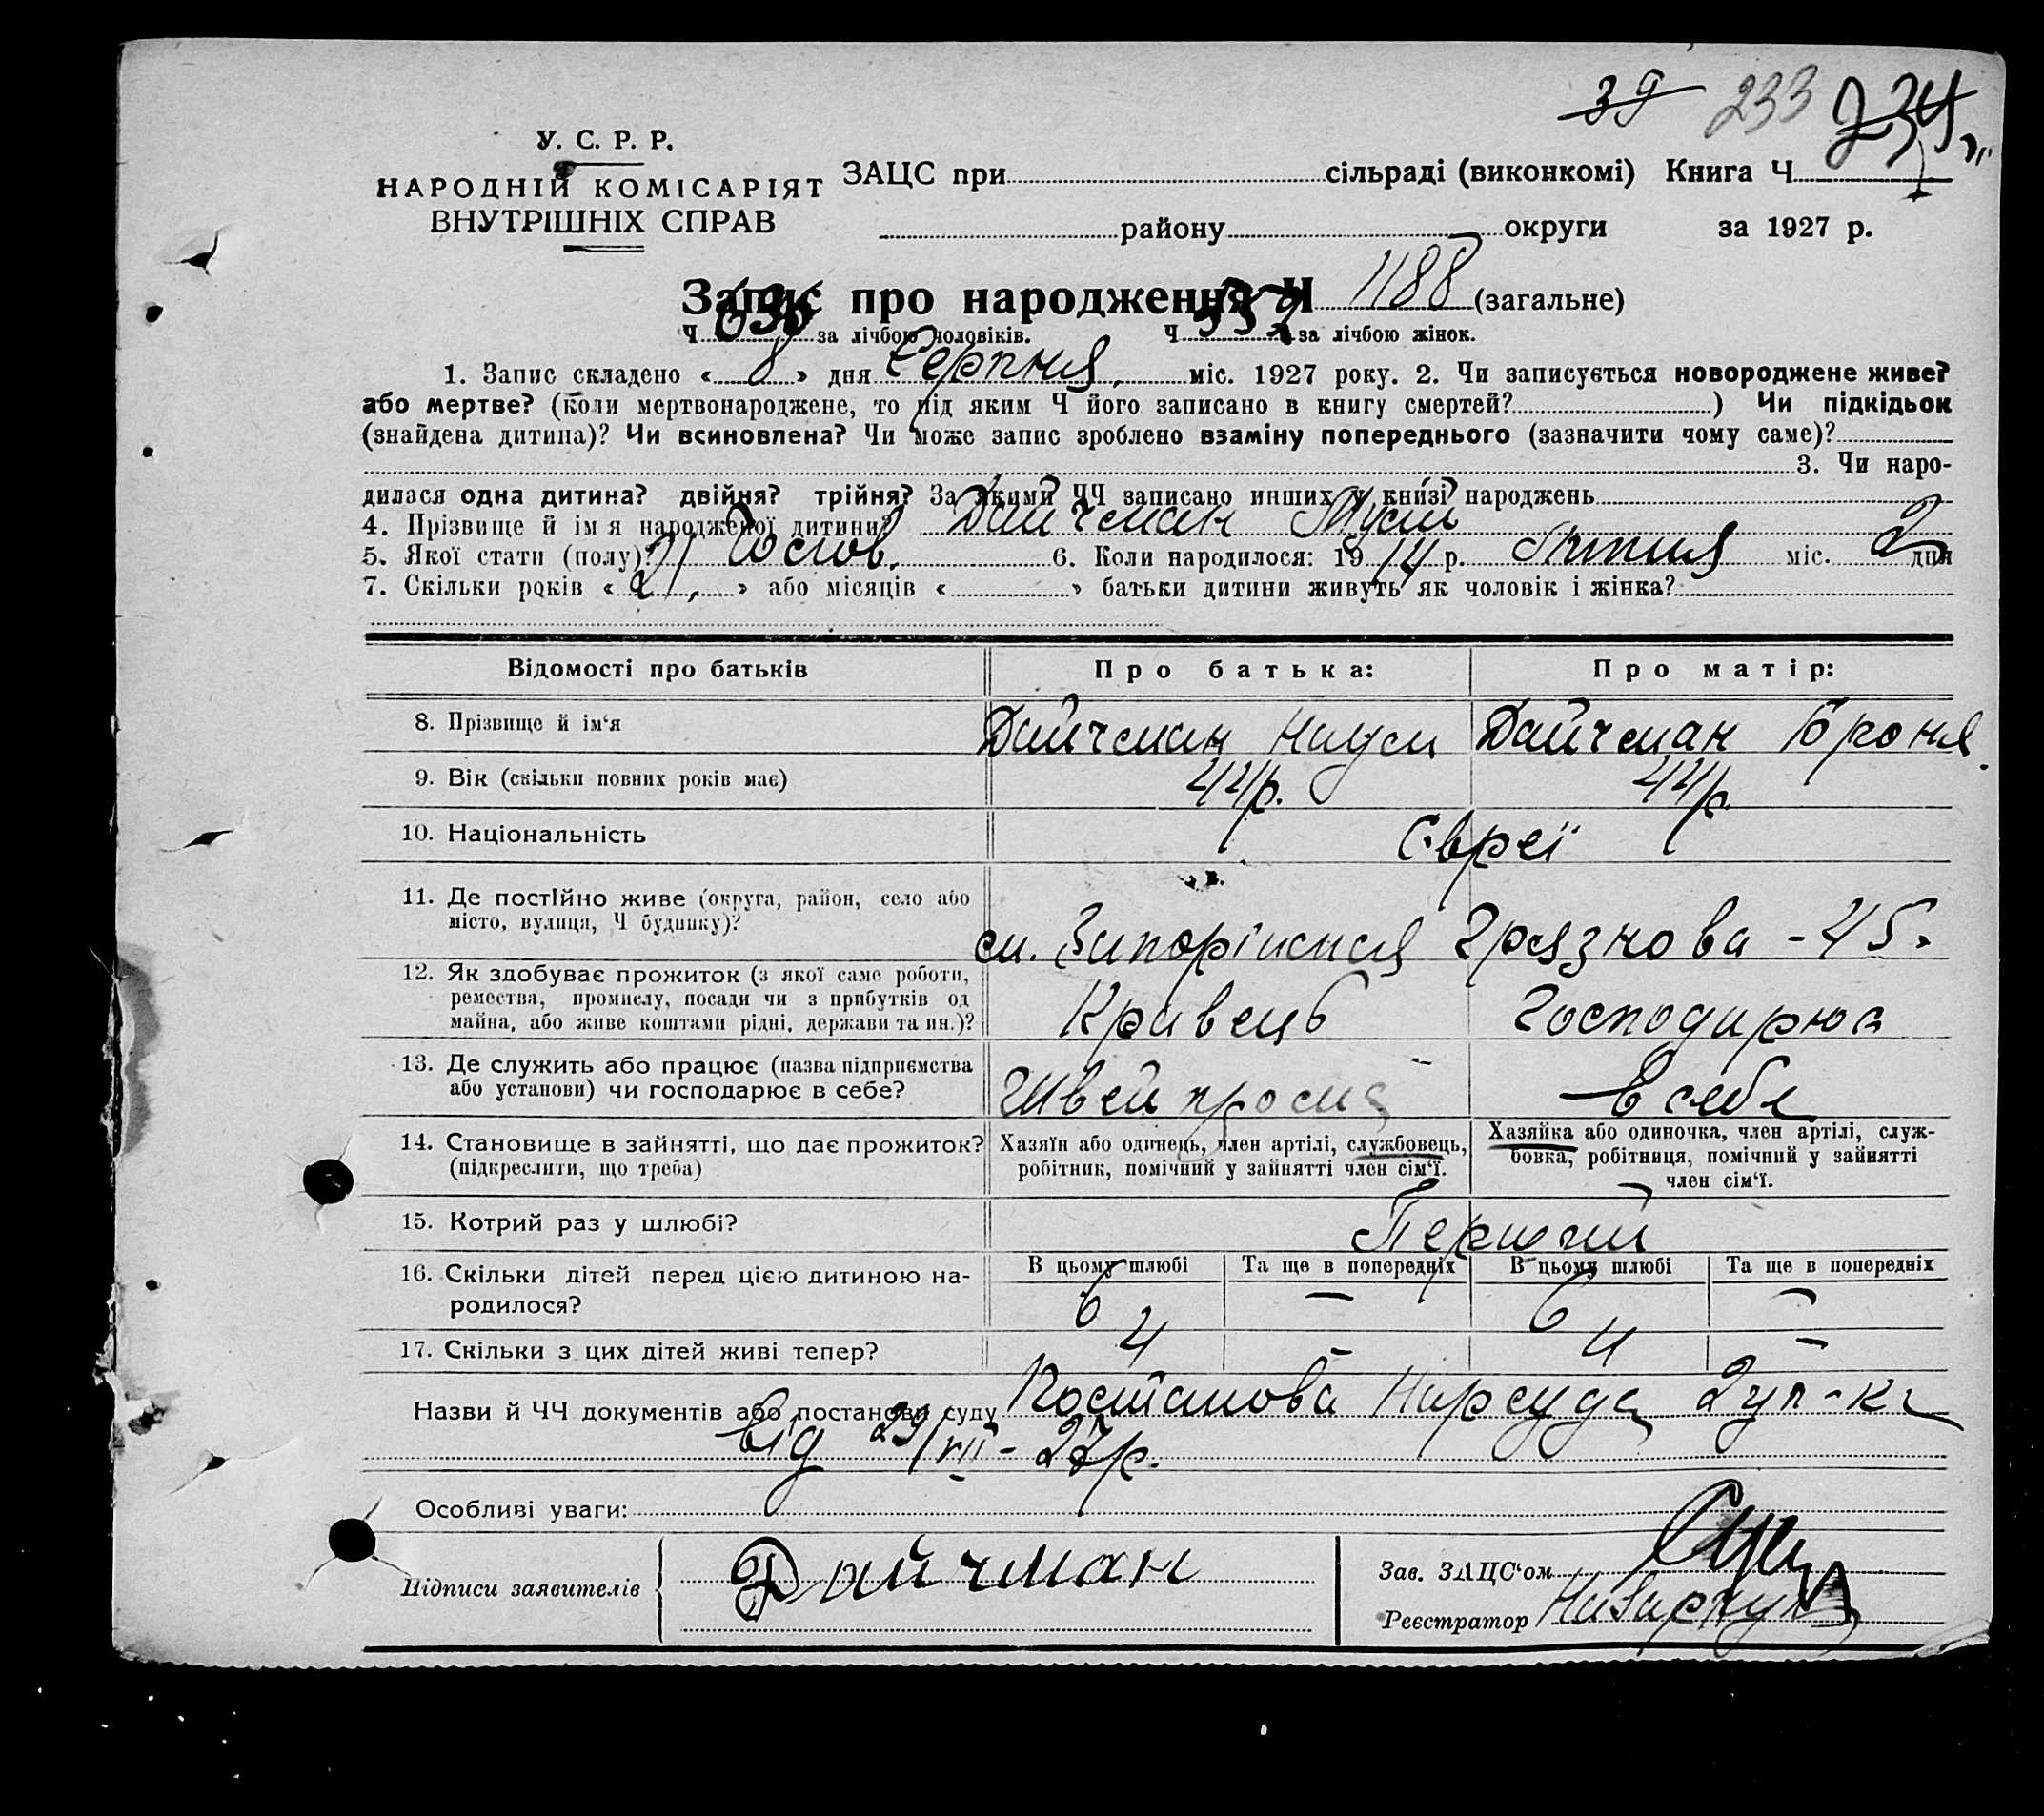 39 233 234
У. С. Р. Р.
НАРОДНІЙ КОМІСАРІЯТ
ВНУТРІШНІХ СПРАВ
ЗАЦС при сільраді (виконкомі) Книга Ч
району округи за 1927 р.
Запис про народження Ч 1188 (загальне)
Ч 636 за лічбою чоловіків. Ч за лічбою жінок.
1. Запис складено « 8 » дня Серпня міс. 1927 року. 2. Чи записується новороджене живе?
або мертве? (коли мертвонароджене, то під яким Ч його записано в книгу смертей? ) Чи підкідьок
(знайдена дитина)? Чи всиновлена? Чи може запис зроблено взаміну попереднього (зазначити чому саме)?
3. Чи наро-
дилася одна дитина? двійня? трійня? За якими ЧЧ записано инших у книзі народжень
4. Прізвище й імя народженої дитини? Дайчман Мусій
5. Якої стати (полу)? 6. Коли народилося: 1914 р. Липня міс. 2 дня
7. Скільки років « 21 » або місяців « » батьки дитини живуть як чоловік і жінка?
Відомості про батьків Про батька: Про матір:
8. Прізвище й ім‘я Дайчман Наум Дайчман Броня
9. Вік (скільки повних років має) 44 р. 44 р.
10. Національність Євреї
11. Де постійно живе (округа, район, село або
місто, вулиця, Ч будинку)?
м. Запоріжжя Грязнова - 45.
12. Як здобуває прожиток (з якої саме роботи,
ремества, промислу, посади чи з прибутків од
майна, або живе коштами рідні, держави та ин.)?
Кравець Господарює
13. Де служить або працює (назва підприємства
або установи) чи господарює в себе?
Швейпром В себе
14. Становище в зайнятті, що дає прожиток?
(підкреслити, що треба)
Хазяїн або одинець, член артілі, службовець,
робітник, помічний у зайнятті член сім‘ї.
Хазяйка або одиночка, член артілі, служ-
бовка, робітниця, помічний у зайнятті
член сім‘ї.
15. Котрий раз у шлюбі? Перший
16. Скільки дітей перед цією дитиною на-
родилося?
В цьому шлюбі Та ще в попередніх В цьому шлюбі Та ще в попередніх
6 — 6 —
17. Скільки з цих дітей живі тепер? 4 - 4 -
Назви й ЧЧ документів або постанови суду Постанова Нарсуда 2 уп-ка
від 29/VII - 27 р.
Особливі уваги:
Підписи заявителів Дайчман
Зав. ЗАЦС‘ом
Реєстратор